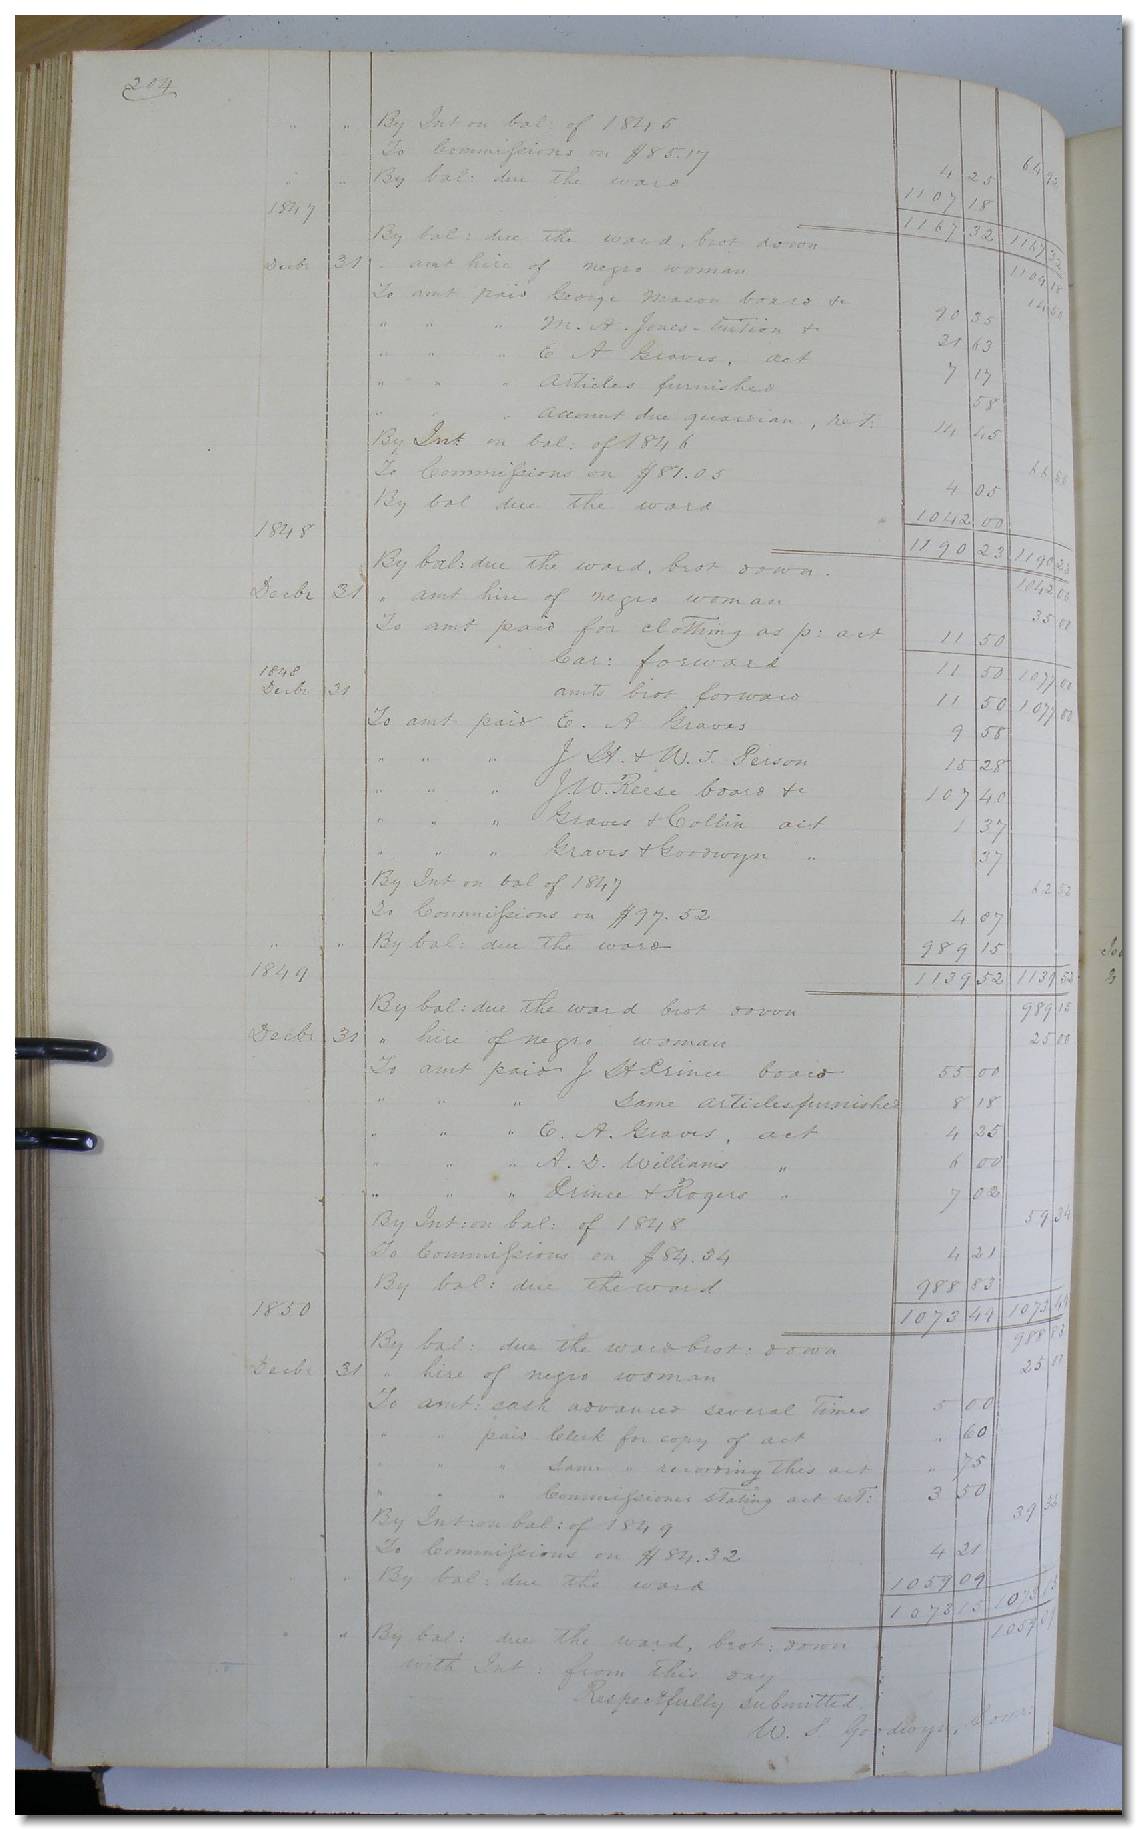 204
" " By Int on bal: of 1845 64 92
To Commissions on $85.17 4 25
" " By bal: due the ward 1107 18
1847 1167 32 1167 32
By bal: due the ward, brot down 1109 18
Decbr 31 " amt hire of negro woman 14 50
To amt paid George Mason board &c 90 35
" " " M. A. Jones - tuition &c 31 63
" " " E A Graves, act 7 17
" " " Articles furnished 58
" " " Account due guardian, ret: 14 45
By Int on bal: of 1846
To Commissions on $81.05 4 05
By bal due the ward 1042 00
1848 1190 23 1190 23
By bal: due the ward, brot down. 1042 00
Decbr 31 " amt hire of negro woman 35 00
To amt paid for clothing as p: act 11 50
Car: forward 11 50 1077 00
1848
Decbr 31 amts brot forward 11 50 1077 00
To amt paid E. A Graves 9 58
" " " J H. & W. T. Person 15 28
" " " J. W. Reese board &c 107 40
" " " Graves & Collin act 1 37
" " " Graves & Goodwyn " 37
By Int on bal of 1847 62 52
To Commissions on $97.52 4 07
" " By bal: due the ward 989 15
1849 1139 52 1139 52
By bal: due the ward brot down 989 15
Decbr 31 " hire of negro woman 25 00
To amt paid J H Prince board 55 00
" " " Same articles furnished 8 18
" " " E. A. Graves, act 4 25
" " " A. D. Williams " 6 00
" " " Prince & Rogers " 7 02
By Int: on bal: of 1848 59 34
To Commissions on $84.34 4 21
By bal: due the ward 988 83
1850 1073 49 1073 49
By bal: due the ward brot: down 988 83
Decbr 31 " hire of negro woman 25 00
To amt: cash advanced several times 5 00
" " paid Clerk for copy of act " 60
" " " Same " recording this act " 75
" " " Commissioner stating act ret: 3 50
By Int: on bal: of 1849 39
To Commissions on $84.32 4 21
" " By bal: due the ward 1059 09
1073 15 1073 15
" " By bal: due the ward, brot: down 1059 09
with Int: from this day
Respectfully submitted
W. S Goodwyn, Comr: